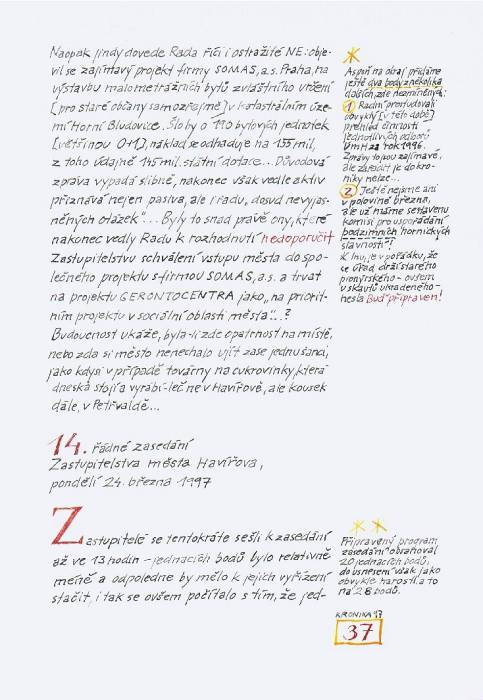 Naopak jindy dovede Rada říci i ostražité NE: obje-
vil se zajímavý projekt firmy SOMAS, a.s. Praha, na
výstavbu malometrážních bytů zvláštního určení
[pro staré občany samozřejmě] v katastrálním úze-
mí Horní Bludovice. Šlo by o 190 bytových jednotek
[většinou 0+1], náklad se odhaduje na 155 mil,
z toho údajně 145 mil. státní dotace... Důvodová
zpráva vypadá slibně, nakonec však vedle aktiv
přiznává nejen pasiva, ale i řadu „dosud nevyjas-
něných otázek“... Byly to snad právě ony, které
nakonec vedly Radu k rozhodnutí nedoporučit
Zastupitelstvu schválení vstupu města do spo-
lečného projektu s firmou SOMAS, a.s. a trvat
na projektu GERONTOCENTRA jako „na priorit-
ním projektu v sociální oblasti města“...?
Budoucnost ukáže, byla-li zde opatrnost na místě,
nebo zda si město nenechalo ujít zase jednu šanci,
jako kdysi v případě továrny na cukrovinky, která
dneska stojí a vyrábí - leč ne v Havířově, ale kousek
dále, v Petřvaldě...
14. řádné zasedání
Zastupitelstva města Havířova,
pondělí 24. března 1997
Zastupitelé se tentokráte sešli k zasedání
až ve 13 hodin - jednacích bodů bylo relativně
méně a odpoledne by mělo k jejich vyřízení
stačit, i tak se ovšem počítalo s tím, že jed-
*
Aspoň na okraj přidáme
ještě dva body z několika
dalších, zde nezmíněných:
1 Radní prostudovali
obvyklý [v této době]
přehled činnosti
jednotlivých odborů
ÚMH za rok 1996.
Zprávy to jsou zajímavé,
ale zařadit je do kro-
niky nelze...
2 Ještě nejsme ani
v polovině března,
ale už máme sestavenu
komisi pro uspořádání
podzimních hornických
slavností!
K hnu, je v pořádku, že
se úřad drží starého
pionýrského - ovšem
u skautů ukradeného -
hesla Buď připraven!
* *
Připravený program
zasedání obsahoval
20 jednacích bodů,
do usnesení však jako
obvykle narostl, a to
na 28 bodů.
KRONIKA '97
37